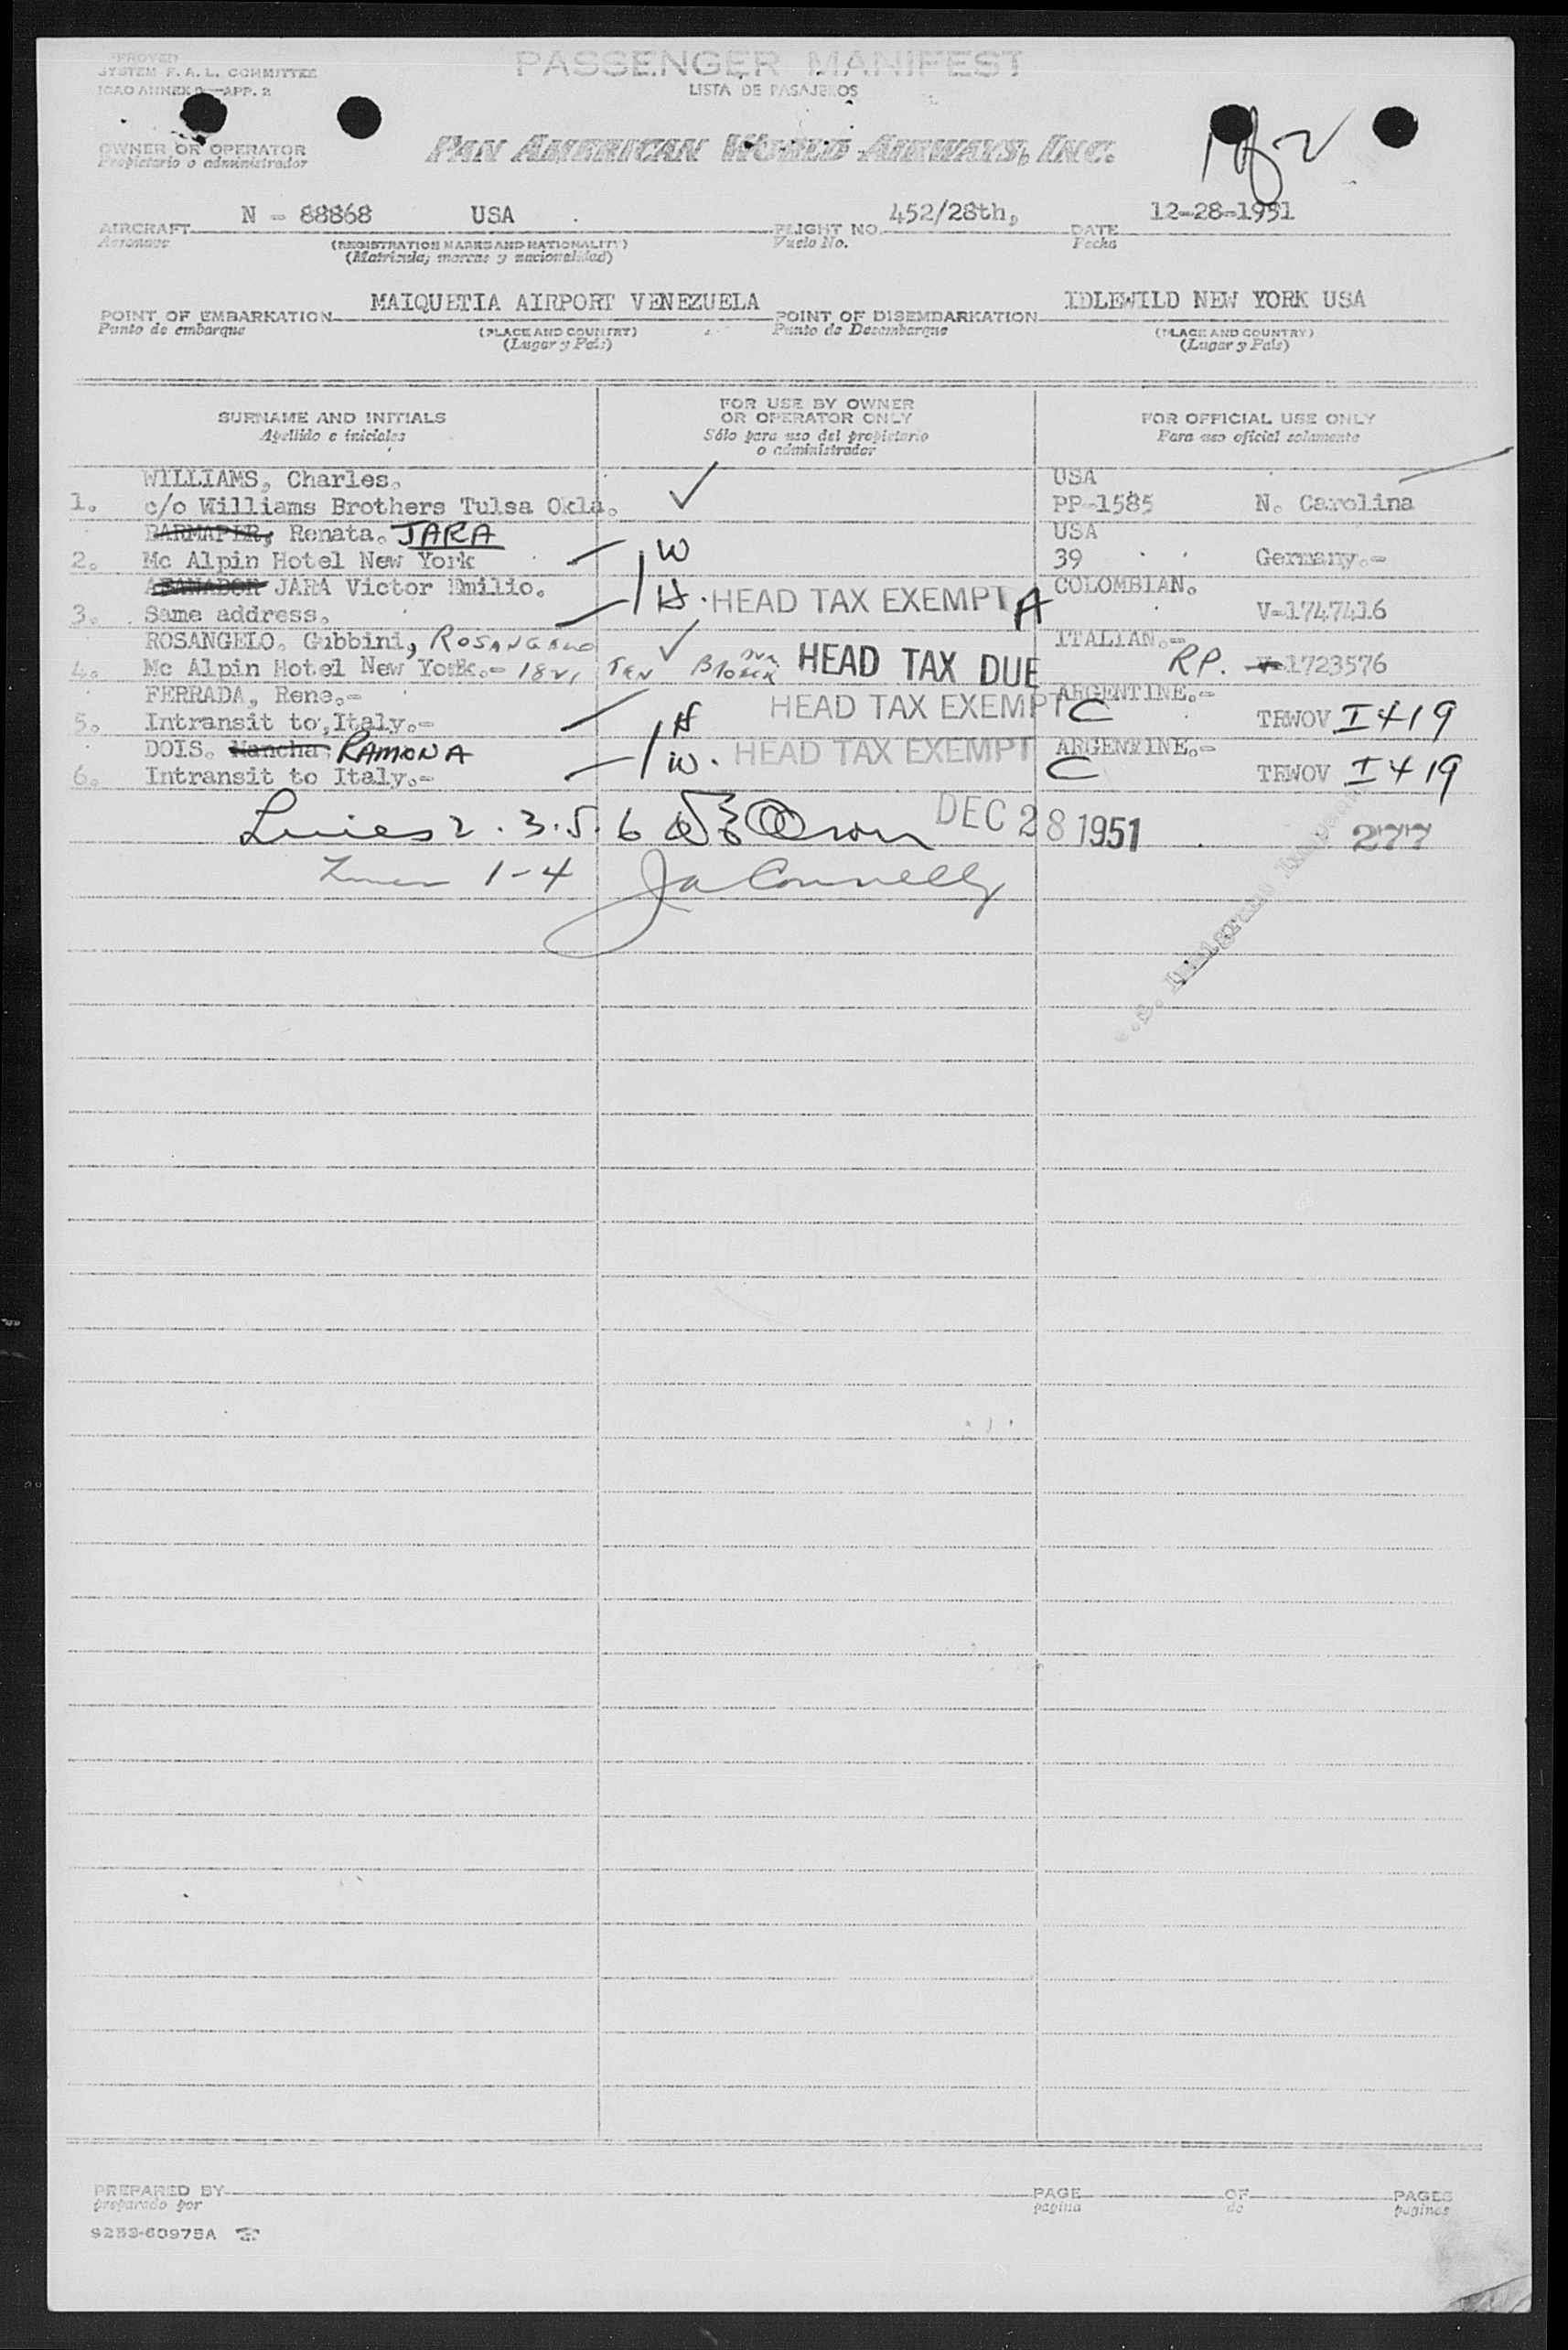 PASSENGER MANIFEST
LISTA DE PASAJEROS
SYSTEM F. A. L. COMMITTEE
ICAO ANNEX 9—APP. 2
OWNER OR OPERATOR
Propietario o administrador
PAN AMERICAN WORLD AIRWAYS, INC.
1 of 2
AIRCRAFT N - 88868 USA FLIGHT NO. 452/28th, DATE 12-28-1951
Aeronave (REGISTRATION MARKS AND NATIONALITY) Vuelo No. Fecha
(Matrícula; marcas y nacionalidad)
POINT OF EMBARKATION MAIQUETIA AIRPORT VENEZUELA POINT OF DISEMBARKATION IDLEWILD NEW YORK USA
Punto de embarque (PLACE AND COUNTRY) Punto de Desembarque (PLACE AND COUNTRY)
(Lugar y País) (Lugar y País)
SURNAME AND INITIALS
Apellido e iniciales
FOR USE BY OWNER
OR OPERATOR ONLY
Sólo para uso del propietario
o administrador
FOR OFFICIAL USE ONLY
Para uso oficial solamente
WILLIAMS, Charles. USA
1. c/o Williams Brothers Tulsa Okla. ✓ PP-1585 N. Carolina
Renata. JARA USA
2. Mc Alpin Hotel New York W 39 Germany.-
AFANADOR JARA Victor Emilio. COLOMBIAN.
3. Same address. H. HEAD TAX EXEMPT A V-1747416
ROSANGELO. Gubbini, ROSANGELO ✓ ITALIAN.-
4. Mc Alpin Hotel New York.- HEAD TAX DUE RP. V-1723576
FERRADA, Rene.- HEAD TAX EXEMPT ARGENTINE.-
5. Intransit to, Italy.- H C TRWOV I 419
DOIS. Nancha, RAMONA HEAD TAX EXEMPT ARGENTINE.-
6. Intransit to Italy.- W. C TRWOV I 419
Lines 2. 3. 5. 6 DEC 28 1951 277
Lines 1-4 Ja Connelly
PREPARED BY PAGE OF PAGES
preparado por pagina de paginas
9253-60975A